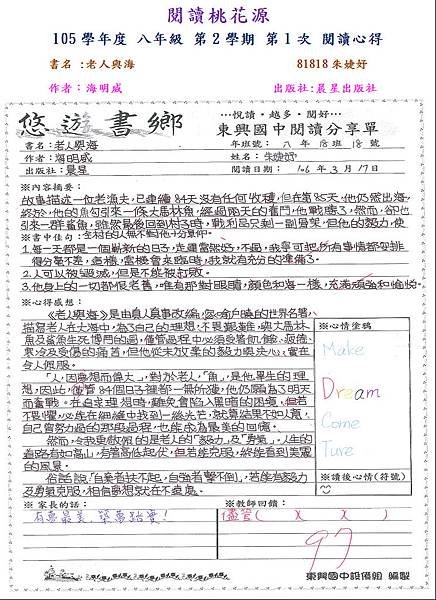 閱讀桃花源
105 學年度 八年級 第2學期 第1次 閱讀心得
書名 :老人與海 81818朱婕妤
作者：海明威 出版社:晨星出版社
悠遊書鄉
…悅讀‧越多‧閱好…
東興國中閱讀分享單
書名：老人與海 年班號：八 年 18 班 18 號
作者：海明威 姓名：朱婕妤
出版社：晨星 閱讀日期：106 年 3 月 17 日
※內容摘要：
故事描述一位老漁夫，已連續84天沒有任何收穫，但在第85天，他仍然出海，
終於，他的魚勾引來一條大馬林魚，經過兩天的奮鬥，他戰勝了，然而，卻也
引來一群鯊魚，雖然最後回到村子時，戰利品只剩一副骨架，但他的毅力，使
全村的人無不對他十分景仰。
※書中佳句：
1.每一天都是一個嶄新的日子，走運當然好，不過，我寧可把所有事情都安排
得分毫不差，這樣，當機會來臨時，我就有充分的準備了。
2.人可以被毀滅，但是不能被打敗。
3.他身上的一切都很老舊，唯有那對眼睛，顏色和海一樣，充滿頑強和愉悅。
※心得感想：
《老人與海》是由真人真事改編，容
描寫老人在大海中，為了自己的理想，不畏艱難，與大馬林
魚及鯊魚生死搏鬥的過，僅管過程中必須受著飢餓、疲倦、
寒冷及受傷的痛苦，但他從未放棄的毅力與決心，實在
令人佩服。
「人，因夢想而偉大」，對於老人，「魚」，是他畢生的理
想，因此，僅管84個日子裡都一無所獲，他仍願為了明天
而奮戰。在追求理想時，難免會陷入黑暗的困境，但若
不畏懼，必能在細縫中找到一絲光芒，就算結果不如人意，
自己曾努力過的那股過程，也能成為最美的回憶。
然而，令我更敬佩的是老人的「毅力」及「勇氣」。人生的
道路有如高山，有高高低起伏，但若能克服，終能看到美麗
的風景。
俗話說：「自棄者扶不起，自強者擊不倒」，若能有毅力
及勇氣克服，相信夢想就在不遠處。
※心情塗鴉
Make
Dream
Come
Ture
※讀後心情(符號)
※家長的話：
有夢最美，築夢踏實！
※教師回饋：
儘管( X X )
97
東興國中設備組 編製